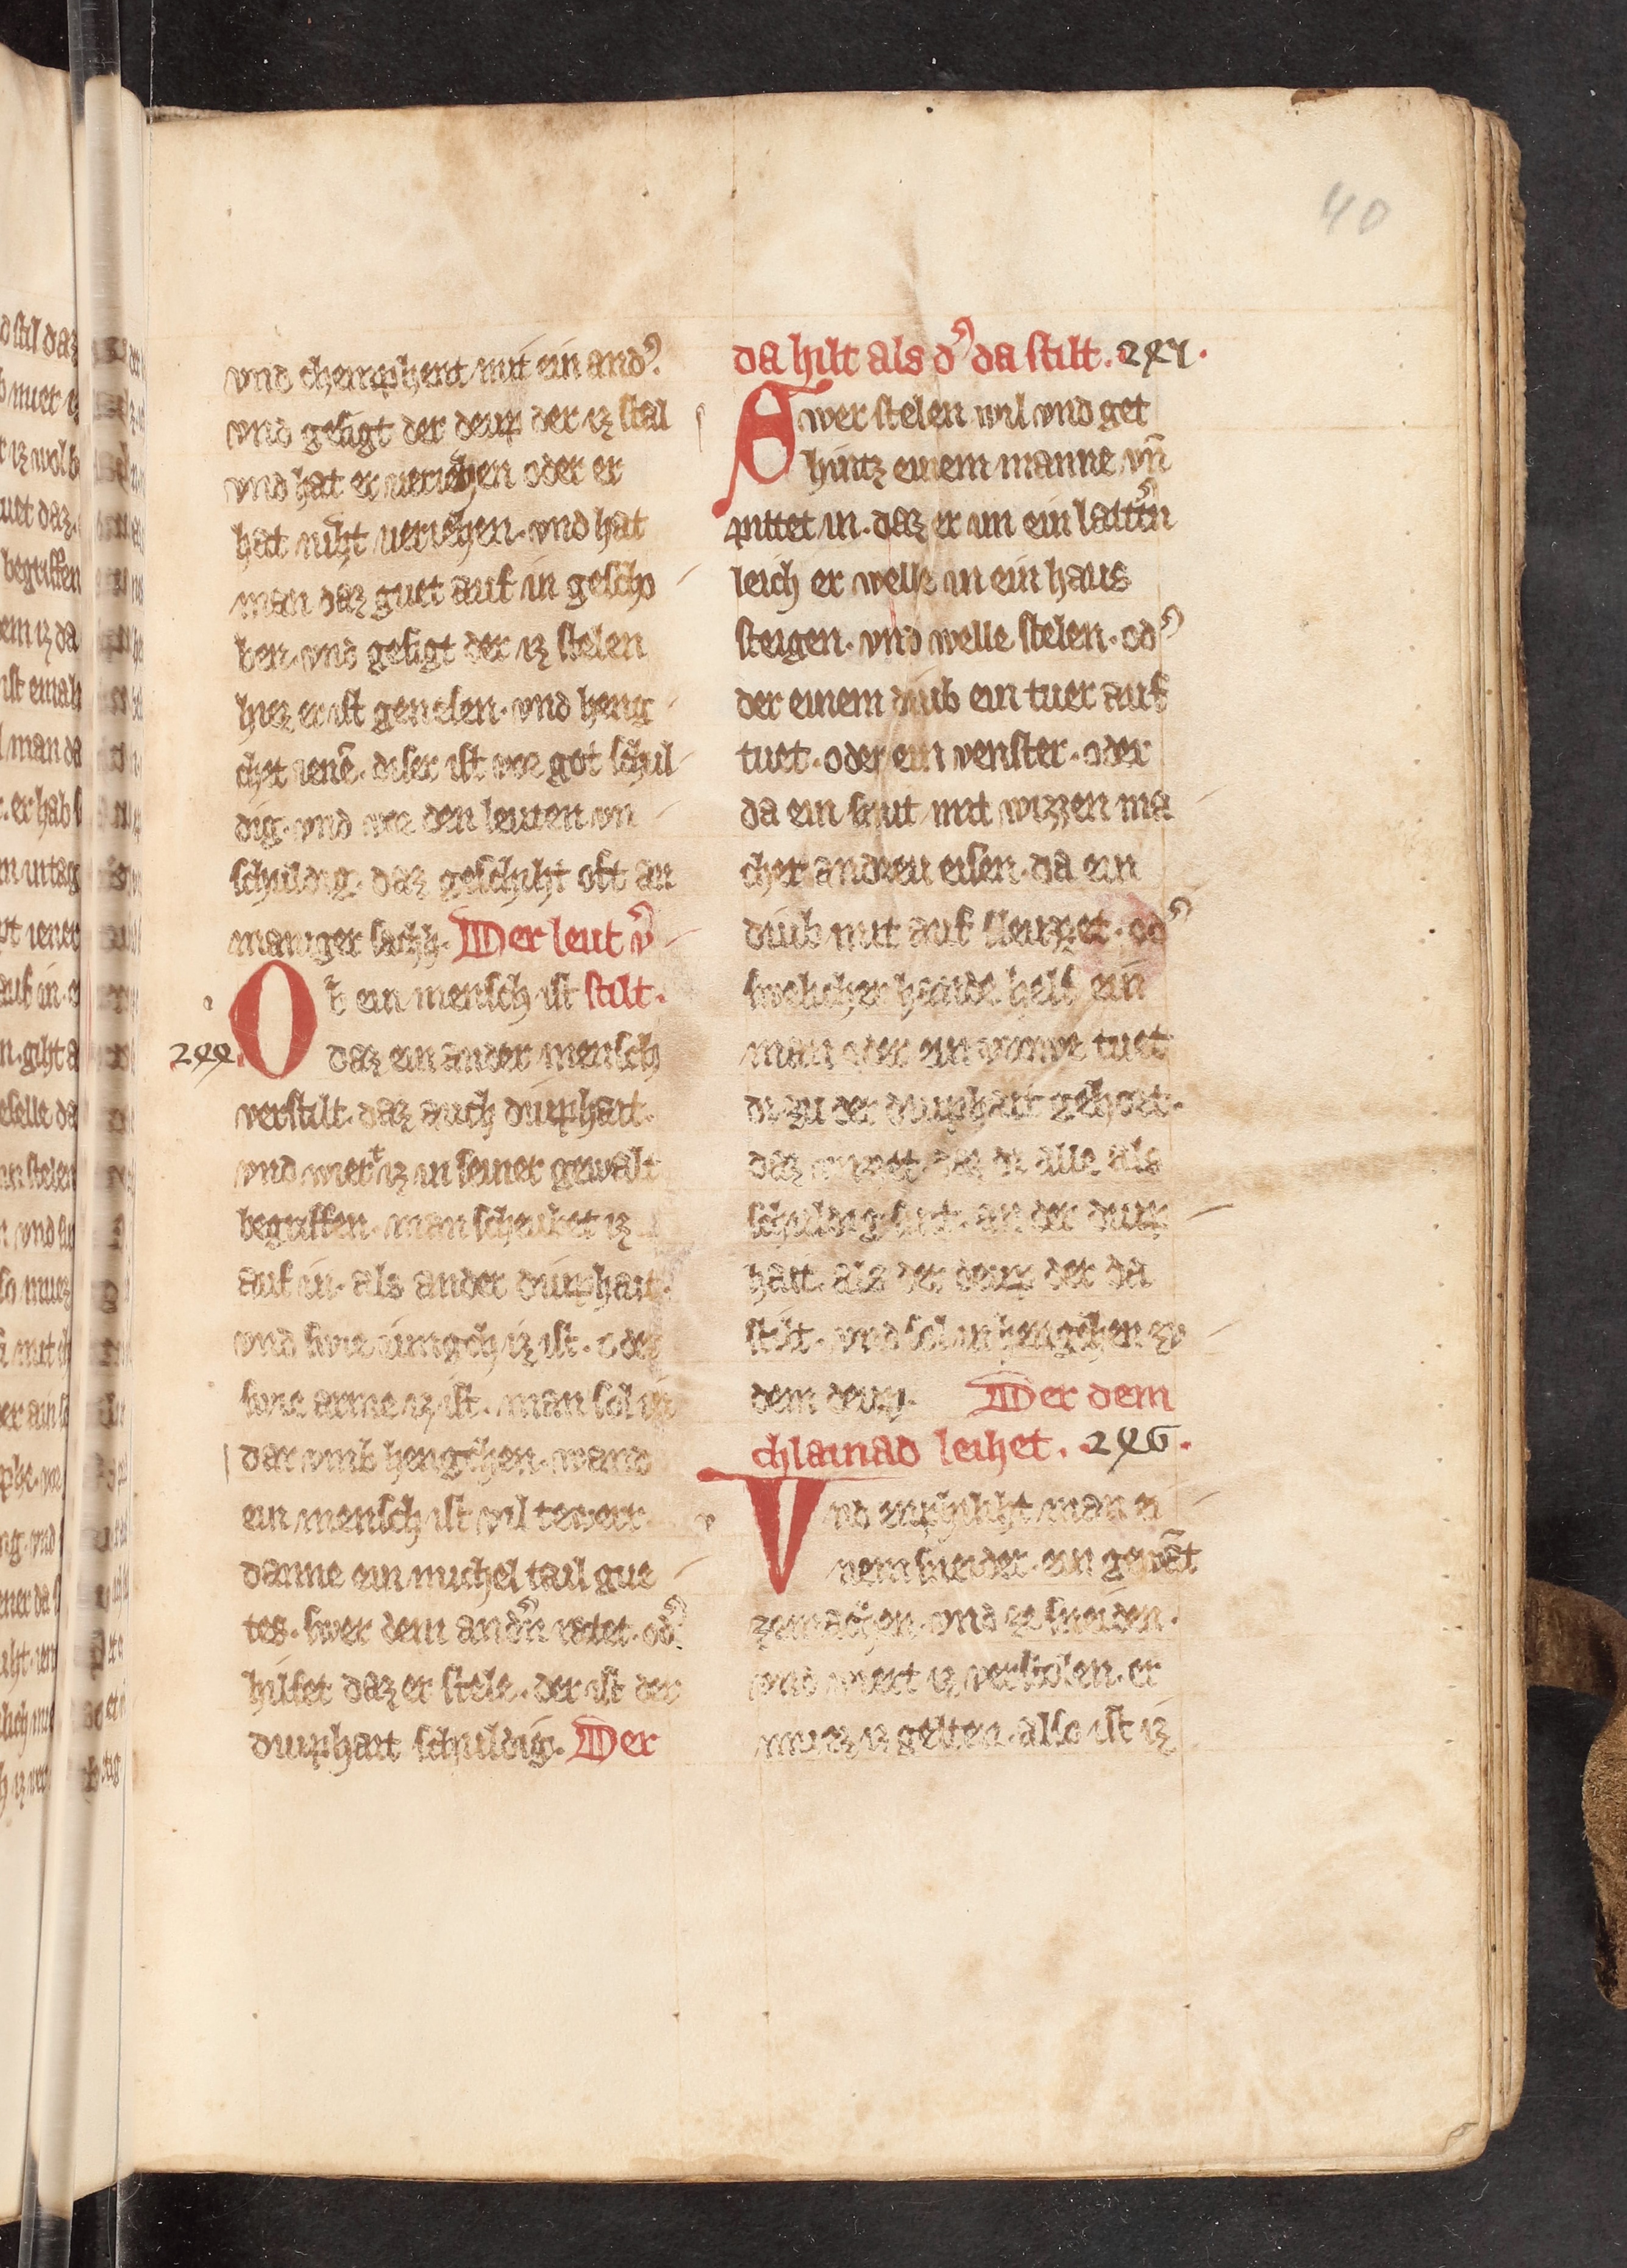 40
vnd chemphent mit ein and᾽.
vnd gesigt der deup der iz stal
vnd hat er veriehen oder er
hat niht veriehen. vnd hat
man daz guet auf in gescho
ben. vnd gesigt der iz stelen
hiez er ist genesen. vnd heng
chet ienē. diser ist vor got schul
dig. vnd vor den leuten vn
schuldig. daz geschiht oft an
maniger sachh. Der leut v᾽
stilt.
Ob ein mensch ist
244. daz ein ander mensch
verstilt. daz auch diuphait.
vnd wirt iz in seiner gewalt
begriffen. man scheubet iz
auf in. als ander diuphait.
vnd swie iungch iz ist. oder
swie arme iz ist. man sol in
dar vmb hengchen. wand
ein mensch ist vil tewerr
danne ein michel tail gue
tes. swer dem and᾽n ratet. od᾽
hilfet daz er stele. der ist der
diuphait schuldig. Der
da hilt als d᾽ da stilt. 245.
Swer stelen wil vnd get
hintz einem manne. vn̄
pittet in. daz er im ein latt᾽n
leich er welle in ein haus
steigen. vnd welle stelen. od᾽
der einem diub ein tuer auf
tuet. oder ein venster. oder
da ein smit mit wizzen ma
chet andreu eisen. da ein
diub mit auf sleuzzet. od᾽
swelicher hande helf ein
man oder ein weip tuet
di zu der diuphait gehoret.
daz di alle als
schuldig sint. an der diup
hait. als der deup der da
stilt. vnd sol in hengchen zu
dem deup. Der dem
chlainad leihet. 246.
Vnd enphilht man ei
nem sneider. ein gewāt
ze machen. vnd ze sneiden.
vnd wirt iz verstolen. er
muez iz gelten. also ist iz